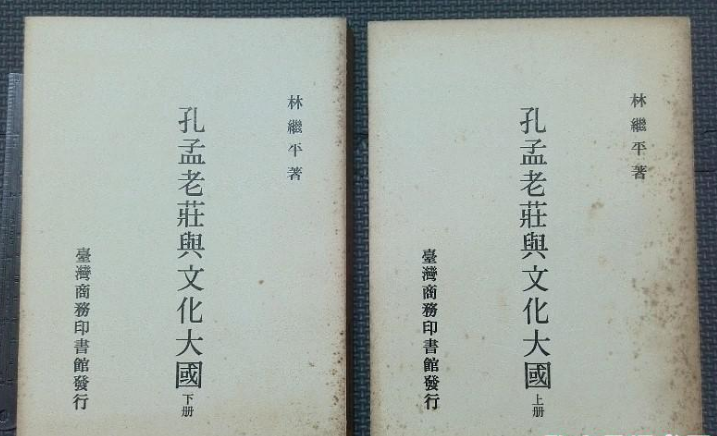 林繼平著
孔孟老莊與文化大國上册
臺灣商務印書館發行
林繼平著
孔孟老莊與文化大國下册
臺灣商務印書館發行